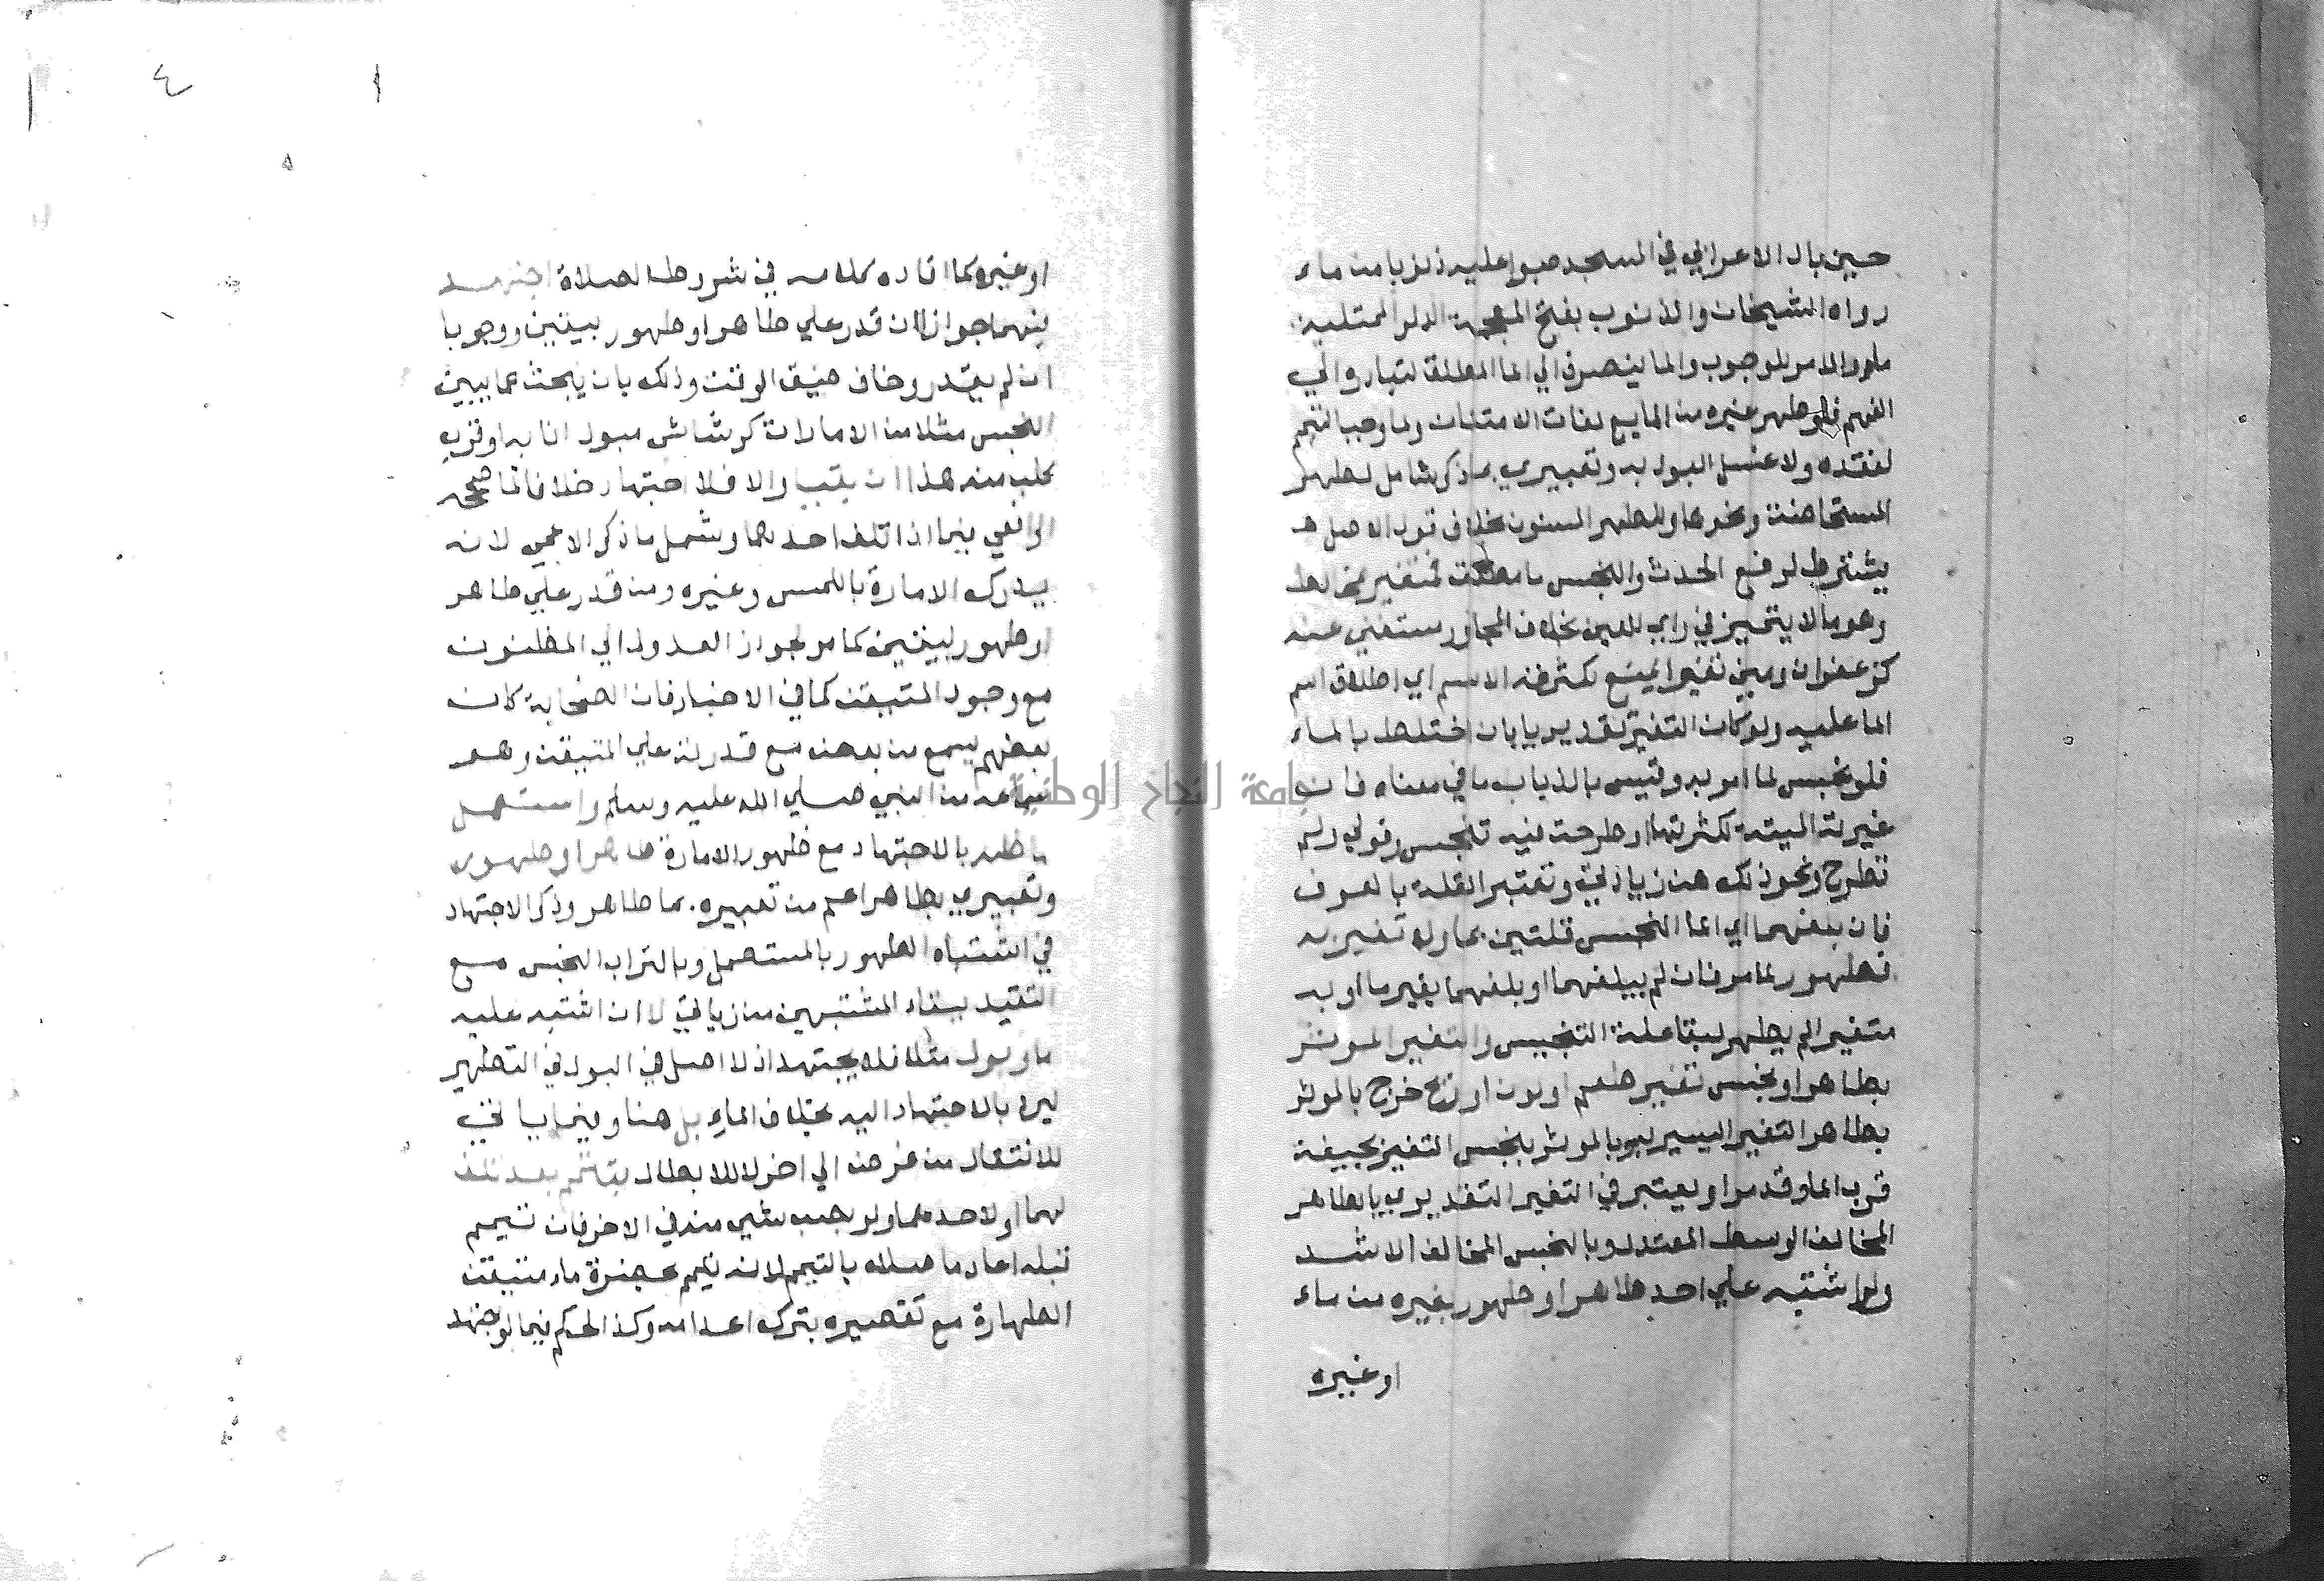 حين بال الاعرابي في المسجد صبوا عليه ذنوبا من ماء
رواه الشيخان والذنوب بفتح المعجمة الدلو الممتلية
ماء والامر للوجوب والما ينصرف الي الما المطلق لتبادره الي
الفهم فلو طهر غيره من المايع لفات الامتنان ولما وجب التيمم
لفقده ولا غسل البول به وتعبيري بما ذكر شامل لطهر
المستحاضة ونحوها وللطهر المسنون بخلاف قول الاصل
يشترط لرفع الحدث والنجس ما مطلق فمتغير بمخالط
وهو ما لا يتميز في راي العين بخلاف المجاور مستغني عنه
كزعفران ومني تغيرا يمنع لكثرته الاسم اي اطلاق اسم
الما عليه ولو كان التغير تقديريا بان اختلط بالماء
فلو نجس لما امر به وقيس بالذباب ما في معناه فان
غيرته الميتة لكثرتها او طرحت فيه تنجس وقولي ولم
تطرح ونحو ذلك من زيادتي وتعتبر القلة بالعرف
فان بلغهما اي الما النجس قلتين بماء ولا تغير به
فطهور لما مر فان لم يبلغهما او بلغهما بغير ما او به
متغيرا لم يطهر لبقا علة التنجيس والتغير الموثر
بطاهر او نجس تغير طعم او لون او ريح خرج بالموثر
بطاهر التغير اليسير به وبالموثر بنجس التغير بجيفة
قرب الما وقد مر او يعتبر في التغير التقديري بالطاهر
المخالف الوسط المعتدل وبالنجس المخالف الاشد
ولو اشتبه علي احد طاهر او طهور بغيره من ماء
او غيره
٤ ١
او غيره كما افاده كلامه في شروط الصلاة اجتهد
فيهما جوازا ان قدر علي طاهر او طهور بيقين ووجوبا
ان لم يقدر وخاف ضيق الوقت وذلك بان يبحث عما يبين
النجس مثلا من الامارات كرشاش حول انايه او قرب
كلب منه هذا ان بقيا والا فلا اجتهاد خلافا لما صححه
الرافعي فيما اذا تلف احدهما وشمل ما ذكر الاعمي لانه
يدرك الامارة باللمس وغيره ومن قدر علي طاهر
او طهور بيقين كما مر لجواز العدول الي المظنون
مع وجود المتيقن كما في الاخبار فان الصحابة كان
بعضهم يسمع من بعض مع قدرته علي المتيقن وهو
سماعه من النبي صلي الله عليه وسلم واستعمل
ما ظنه بالاجتهاد مع ظهور الامارة طاهرا او طهورا
وتعبيري بطاهر اعم من تعبيره بما طاهر وذكر الاجتهاد
في اشتباه الطهور بالمستعمل وبالتراب النجس مع
التقييد ببقاء المشتبهين من زيادتي لا ان اشتبه عليه
ما وبول مثلا فلا يجتهد اذ لا اصل في البول في التطهير
ليرد بالاجتهاد اليه بخلاف الماء بل هنا وفيما ياتي
للانتقال من غرض الي اخر لا للابطال يتيمم بعد تلف
لهما او لاحدهما ولو بصب شيء منه في الاخر فان تيمم
قبله اعاد ما صلاه بالتيمم لانه تيمم بحضرة ماء متيقن
الطهارة مع تقصيره بترك اعدامه وكذا الحكم فيما لو اجتهد
جامعة النجاح الوطنية